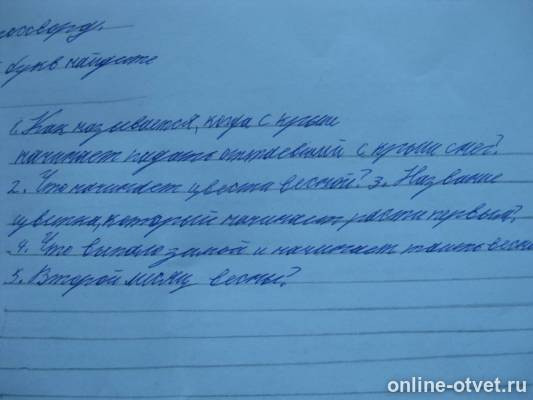 россворд.
букв найдите
1. Как называется, когда с крыши
начинает падать оттаевший с крыши снег?
2. Что начинает цвести весной? 3. Название
цветка, который начинает расти первый?
4. Что выпало зимой и начинает таить весно
5. Второй месяц весны?
online-otvet.ru